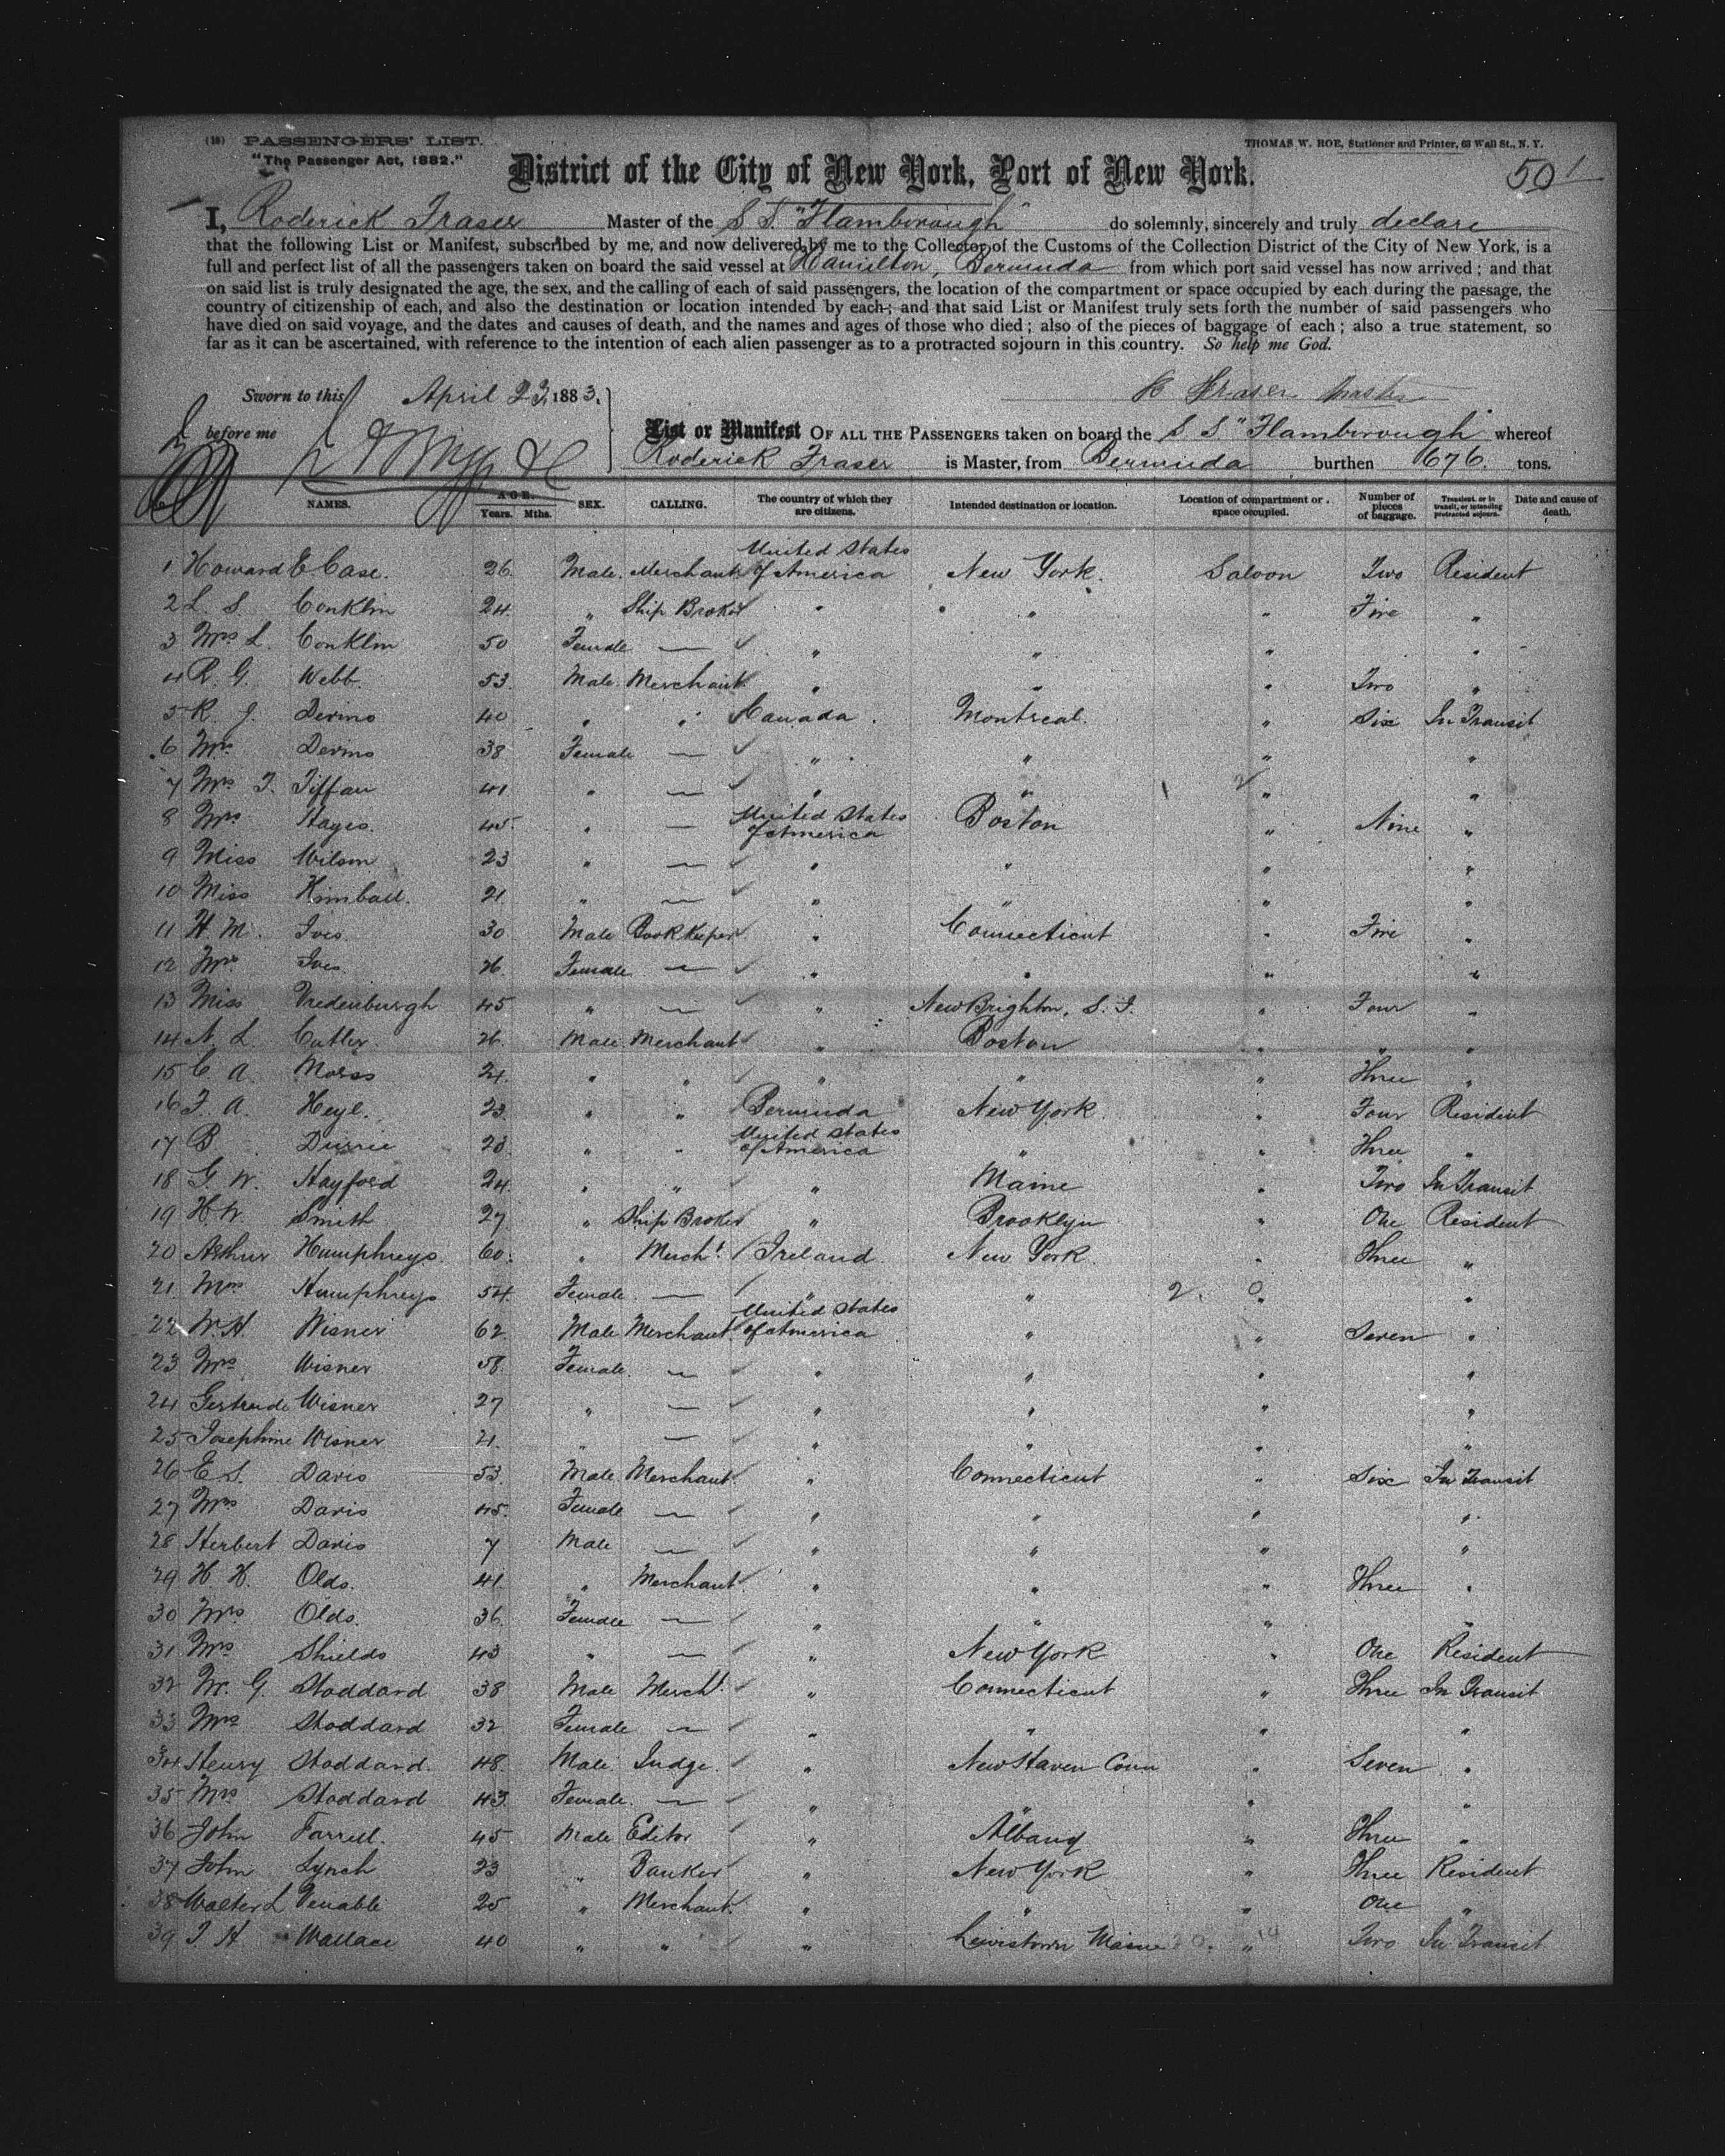 (18) PASSENGERS' LIST.
"The Passenger Act, 1882."
THOMAS W. ROE, Stationer and Printer, 63 Wall St., N. Y.
District of the City of New York, Port of New York.
501
I, Roderick Fraser Master of the S S. "Flamborough" do solemnly, sincerely and truly declare
that the following List or Manifest, subscribed by me, and now delivered by me to the Collector of the Customs of the Collection District of the City of New York, is a
full and perfect list of all the passengers taken on board the said vessel at Hamilton, Bermuda from which port said vessel has now arrived; and that
on said list is truly designated the age, the sex, and the calling of each of said passengers, the location of the compartment or space occupied by each during the passage, the
country of citizenship of each, and also the destination or location intended by each; and that said List or Manifest truly sets forth the number of said passengers who
have died on said voyage, and the dates and causes of death, and the names and ages of those who died; also of the pieces of baggage of each; also a true statement, so
far as it can be ascertained, with reference to the intention of each alien passenger as to a protracted sojourn in this country. So help me God.
Sworn to this April 23, 1883.
R Fraser Master
before me
List or Manifest OF ALL THE PASSENGERS taken on board the S S "Flamborough" whereof
Roderick Fraser is Master, from Bermuda burthen 676. tons.
NAMES. AGE. Years. Mths. SEX. CALLING. The country of which they are citizens. Intended destination or location. Location of compartment or space occupied. Number of pieces of baggage. Transient, or in transit, or intending protracted sojourn. Date and cause of death.
1 Howard E Case. 26. Male. Merchant United States of America New York. Saloon Two Resident
2 L. S. Conklin 24 " Ship Broker " " " Five "
3 Mrs L. Conklin 50 Female — " " " " "
4 R. G. Webb. 53. Male. Merchant " " " Two "
5 R. J. Devins 40 " " Canada. Montreal. " Six In Transit
6 Mrs Devins 38 Female — " " " "
7 Mrs T. Tiffan 41 " — " " " "
8 Mrs Hayes. 45 " — United States of America Boston " Nine "
9 Miss Wilson 23 " — " " " "
10 Miss Kimball. 21. " — " " " "
11 H M. Ives. 30 Male Bookkeeper " Connecticut " Five "
12 Mrs Ives 26. Female — " " " "
13 Miss Vredenburgh 45 " — " New Brighton, S. I. " Four "
14 N. L. Cutler. 26. Male. Merchant " Boston " " "
15 C A. Morss 21. " " " " " Three "
16 F. A. Heyl. 23. " " Bermuda New York " Four Resident
17 B. Durrie 23. " " United States of America " " Three "
18 G. W. Hayford 24. " " " Maine " Two In Transit
19 H W. Smith 27 " Ship Broker " Brooklyn " One Resident
20 Arthur Humphreys. 60. " Mercht. Ireland. New York " Three "
21 Mrs Humphreys 54. Female. — " " 2. 0 " "
22 W. H. Wisner 62 Male Merchant United States of America " " Seven "
23 Mrs Wisner 58. Female. — " " " "
24 Gertrude Wisner 27 " — " " " "
25 Josephine Wisner 21. " — " " " "
26 E S. Davis 53. Male Merchant " Connecticut " Six In Transit
27 Mrs Davis 45. Female — " " " "
28 Herbert Davis 7 Male — " " " "
29 H. H. Olds. 41. " Merchant. " " " Three "
30 Mrs Olds. 36. Female — " " " "
31 Mrs Shields 43 " — " New York " One Resident
32 W. G. Stoddard 38 Male Mercht. " Connecticut " Three In Transit
33 Mrs Stoddard 32 Female — " " " "
34 Henry Stoddard. 48. Male Judge. " New Haven Conn " Seven "
35 Mrs Stoddard 43. Female. — " " " "
36 John Farrell. 45 Male Editor " Albany " Three "
37 John Lynch 23 " Banker " New York " Three Resident
38 Walter L Venable 25 " Merchant. " " " One "
39 T H. Wallace 40 " " " Lewistown Maine " Two In Transit